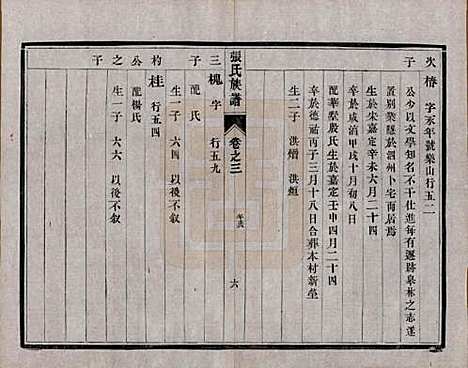 次子 椿 字永年號樂山行五二
公少以文學知名不干仕進每有遯跡泉林之志遂
置別業隱於泗州卜宅而居焉
生於宋嘉定辛未六月二十四
卒於咸淳甲戌十月初八日
配華墅殷氏生於嘉定壬申四月二十四
卒於德祐丙子三月十八日合葬本村新塋
生二子 洪熠 洪烜
張氏族譜 卷之三 六
三子 槐 字 行五九
配 氏
生一子 六四 以後不叙
杓公之子 桂 行五四
配楊氏
生一子 六六 以後不叙